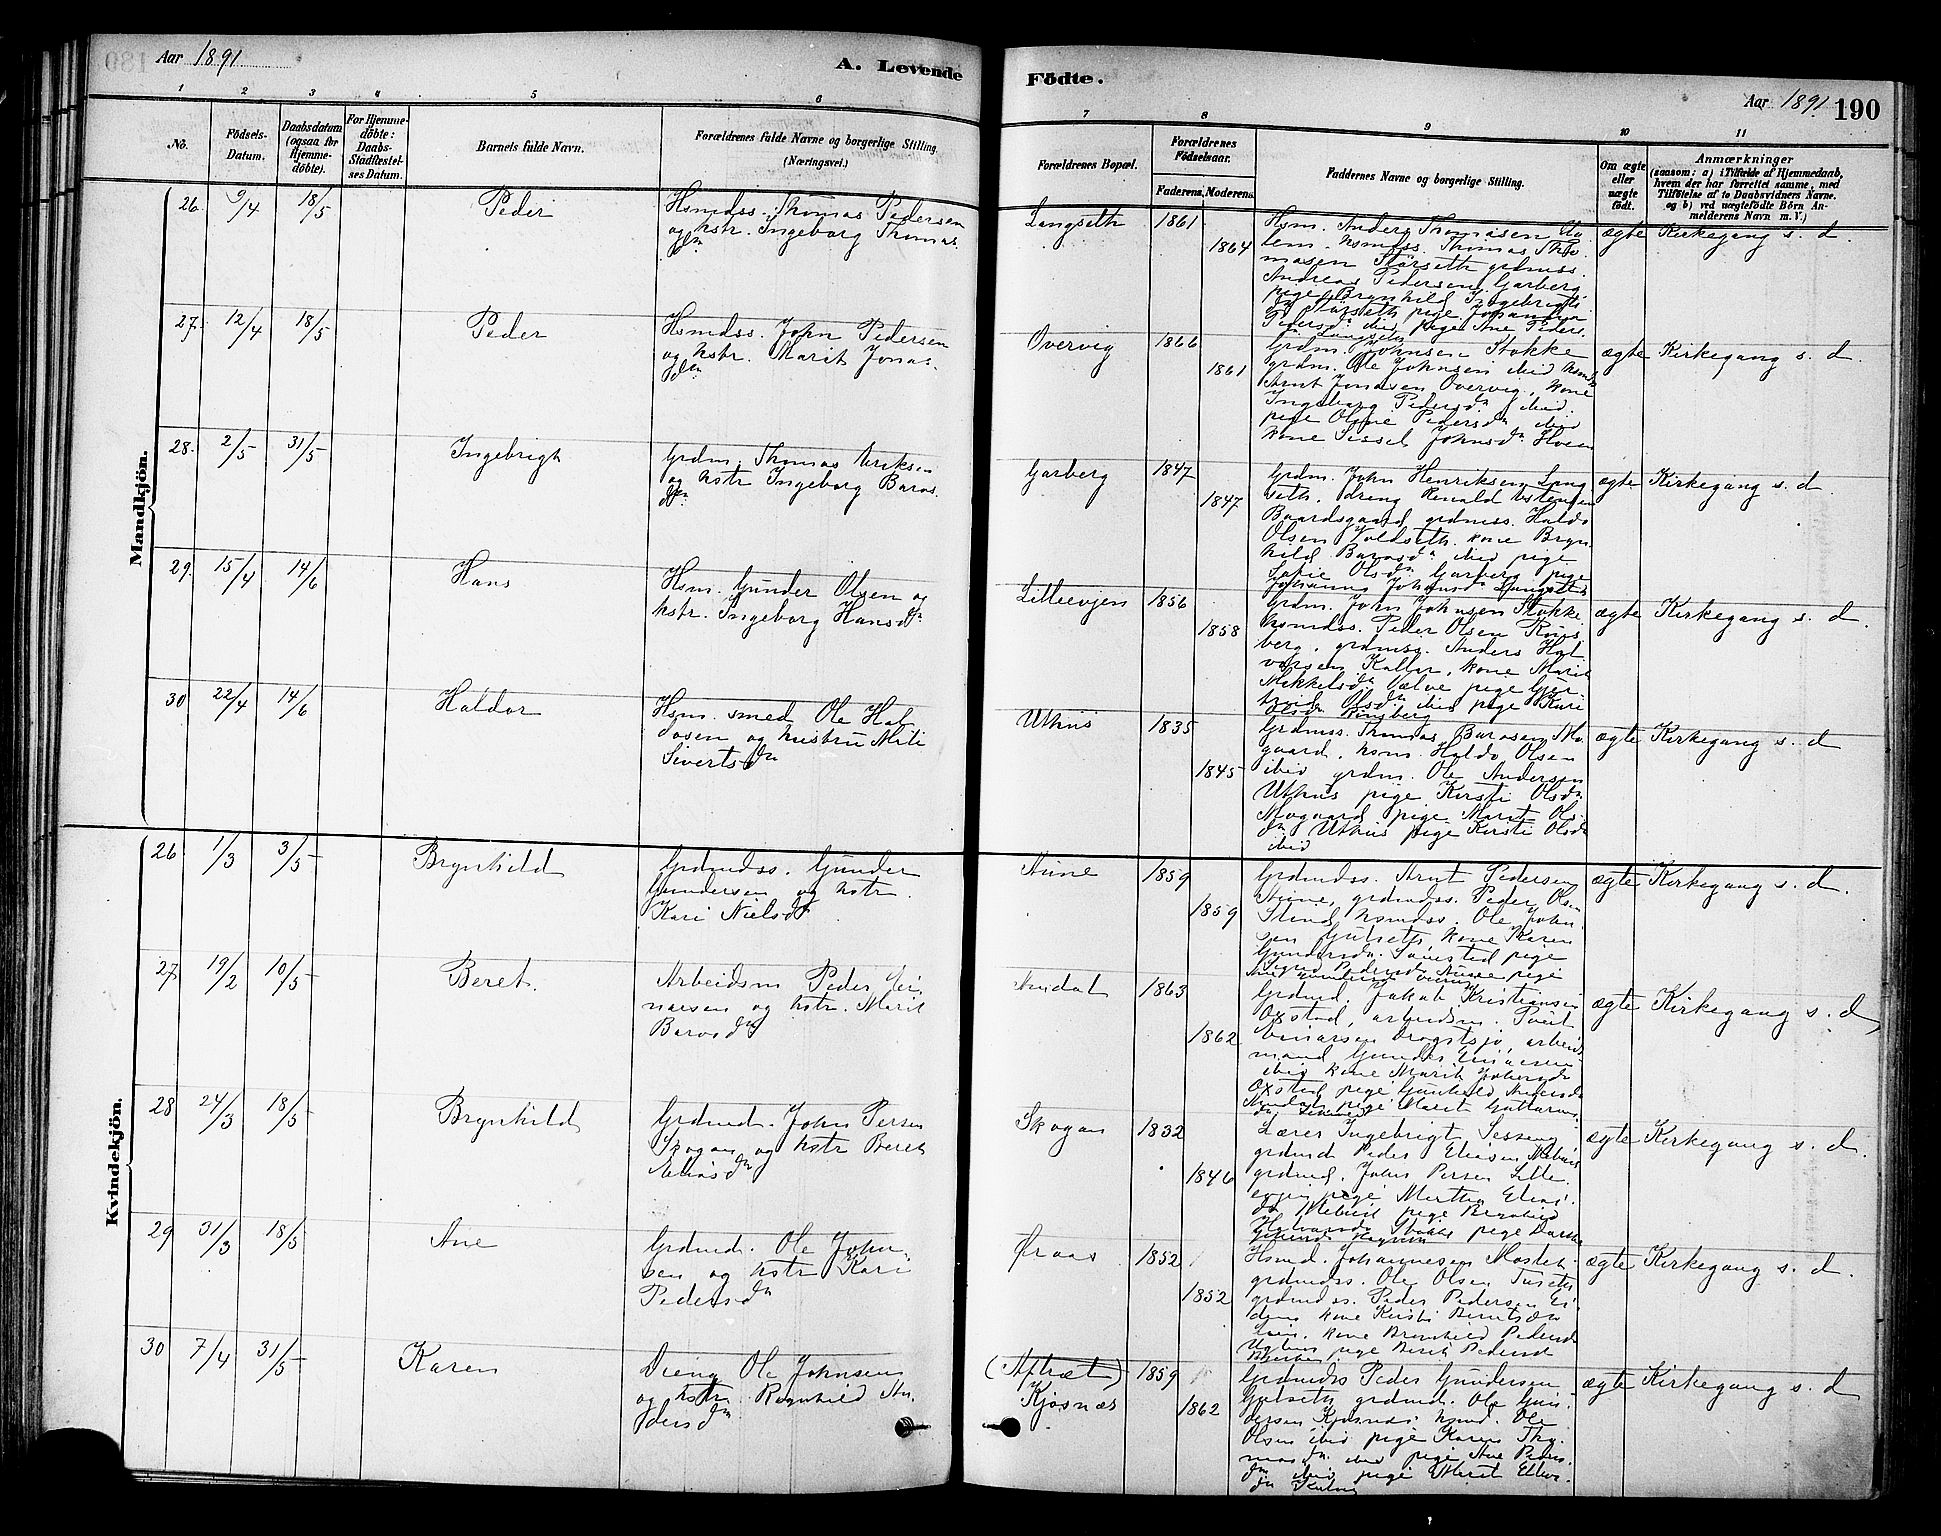 Aar 1891
A. Levende
Födte.
Aar 1891
190
1 2 3 4 5 6
7 8 9 10 11
No.
Födsels-
Datum.
Daabsdatum
(ogsaa for
Hjemme-
döbte).
For Hjemme-
döbte:
Daabs-
Stadfæstel-
ses Datum.
Barnets fulde Navn.
Forældrenes fulde Navne og borgerlige Stilling
(Næringsvei.)
Forældrenes Bopæl.
Forældrenes
Födselsaar.
Faderens. Moderens.
Faddernes Navne og borgerlige Stilling.
Om ægte
eller
uægte
født.
Anmærkninger
(saasom: a) i Tilfælde af Hjemmedaab,
hvem der har forrettet samme, med
Tilföielse af to Daabsvidners Navne.
og b) ved uægtefödte Börn An-
melderens Navn m. V.)
Mandkjön.
26. 9/4 18/5 Peder
Hsmdss. Thomas Pedersen
og hstr. Ingeborg Thomas
dn
Langseth 1861
1864
Hsm. Anders Thomasen
hsmdss. Thomas Tho
masen Störseth grdmss.
Andreas Pedersen Garberg
pige Brynhild Ingebrigts
dn Störseth pige Johanna
Pedersdn ibid pige Ane Peders
ægte Kirkegang s. d.
27. 12/4 18/5 Peder
Hsmdss. John Pedersen
og hstr. Marit Jonas
dn
Overvig 1866
1861
Grdm. Johnsen Stokke
grdm. Ole Johnsen ibid
Arnt Jonasen Overvig, kone
Ingeborg Pedersdn ibid
pige Oline Pedersdn ibid
kone Sissel Johnsdn
ægte Kirkegang s. d.
28. 2/5 31/5 Ingebrigt
Grdm. Thomas Eriksen
og hstr Ingeborg Baros
dn
Garberg 1847
1847
Grdm. John Henriksen Lang
seth. dreng Renald Estensen
Baardsgaard grdmss. Haldo
Olsen Voldseth. kone Bryn
hild Barosdn ibid pige
Sofie Olsdn Garberg pige
Johanna Johnsdn Langseth
ægte Kirkegang s. d.
29. 15/4 14/6 Hans
Hsm. Gunder Olsen og
hstr. Ingeborg Hansdn
Lilleevjen 1856
1858
Grdm. John Johnsen Stokke
hsmdss. Peder Olsen Rons
berg, grdmss. Anders Hal
vorsen Kallar, kone Marit
Mikkelsdn Vælve pige Gjer
trud Olsdn ibid pige Kari
Olsdn Ronsberg
ægte Kirkegang s. d.
30 22/4 14/6 Haldor
Hsm. smed Ole Hal
dosen og hustru Mali
Sivertsdn
Uthus 1835
1845
Grdmss. Thomas Barosen Mo
gaard, hsm. Haldo Olsen
ibid grdm. Ole Andersen
Uthus pige Kirsti Olsdn
Mogaard pige Marit Ols
dn Uthus pige Kirsti Olsdn
ibid
ægte Kirkegang s. d
Kvindekjön.
26 1/3 3/5 Brynhild
Grdmdss. Gunder
Gundersen og hstr.
Kari Nielsdn
Aune 1859
1859
Grdmdss. Arnt Pedersen
Aune, grdmdss. Peder Olsen
hsmdss. Ole John
sen kone Karen
Gundersdn. pige
ægte Kirkegang s. d.
27 19/2 10/5 Beret.
Arbeidsm Peder Ei
narsen og hstr. Marit
Barosdn
Amdal 1863
1862
Grdmd. Jakob Kristiansen
Oxstad, arbeidsm.
Einarsen Drogstsjø, arbeids
mand Gunder Einarsen
ibid kone Marit
Oxstad pige Gunhild
pige Marit
ægte Kirkegang s. d
28 24/3 18/5 Brynhild
Grdmd. John Persen
Skogan og hstr Beret
Eliasdn
Skogan 1832
1846
Lærer Ingebrigt Sesseng
grdmd Peder Eliasen Mebust
grdmd. John Persen Lille
evjen pige Martha Elias
dn Mebust pige
pige
ægte Kirkegang s. d.
29 31/3 18/5 Ane
Grdmd. Ole John
sen og hstr Kari
Pedersdn
Graas 1852
1852
Hsmd. Johannesen Moslet
grdmdss. Ole Olsen Tuseth
grdmdss. Peder Pedersen Ei
dem kone Kirsti Berntsdn
kone Brynhild Pedersdn
pige Berit Pedersdn
ægte Kirkegang s. d.
30 7/4 31/5 Karen
Dreng Ole Johnsen
og hstr. Ragnhild An
dersdn
(Aftræt)
Kjøsnæs
1859
1862
Grdmdss Peder Gundersen
grdmd. Ole Gun
dersen Kjøsnæs hsmd. Ole
Olsen ibid pige Karen Tho
masdn ibid pige Ane Peders
dn ibid pige Marit
dn
ægte Kirkegang s. d